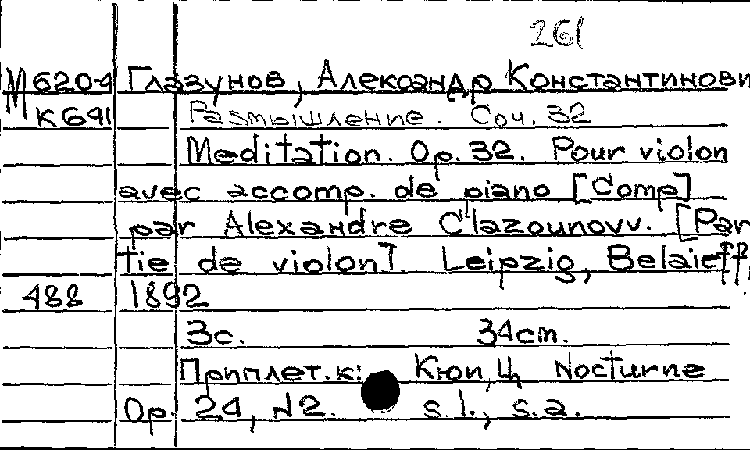 261
М620-4 Глазунов, Александр Константинови
К641 Размышление. Соч. 32
Meditation. Op. 32. Pour violon
avec accomp. de piano [Comp]
par Alexandre Clazounovv. [Par
tie de violon]. Leipzig, Belaieff,
488 1892
3с. 34cm.
Приплет. к: Кюи, Ц. Nocturne
Op. 24, N2. s.l., s.a.